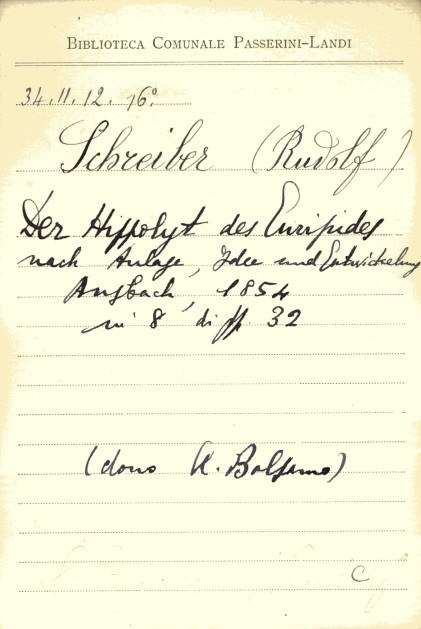 BIBLIOTECA COMUNALE PASSERINI-LANDI
34.11.12.16º
Schreiber (Rudolf)
Der Hippolyt des Euripides
nach Anlage, Idee und Entwickelung
Ansbach, 1854
in 8 di pp 32
(dono
C